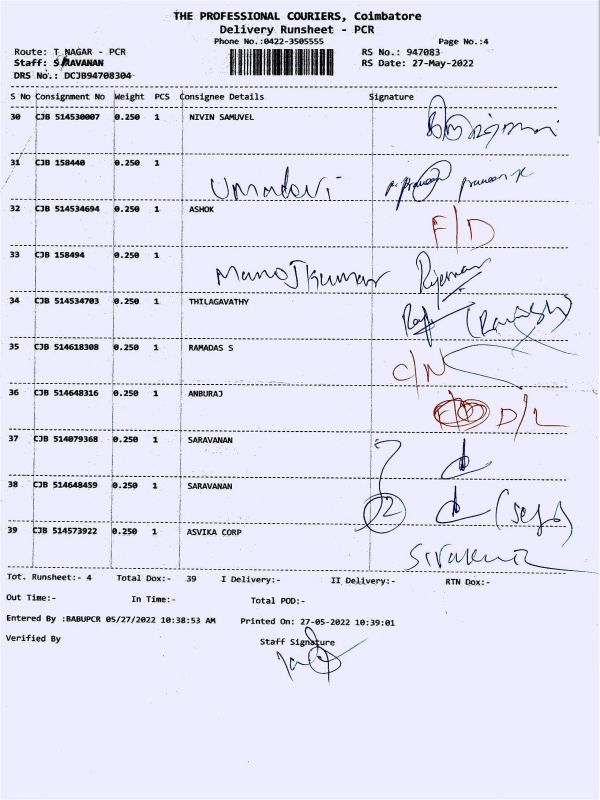 THE PROFESSIONAL COURIERS, Coimbatore
Delivery Runsheet - PCR
Phone No.:0422-3505555 Page No.:4
Route: T NAGAR - PCR RS No.: 947083
Staff: SARAVANAN RS Date: 27-May-2022
DRS No.: DCJB94708304
S No Consignment No Weight PCS Consignee Details Signature
30 CJB 514530007 0.250 1 NIVIN SAMUVEL
31 CJB 158440 0.250 1
Umadevi
32 CJB 514534694 0.250 1 ASHOK
F/D
33 CJB 158494 0.250 1
Manoj kumar
34 CJB 514534703 0.250 1 THILAGAVATHY
35 CJB 514618308 0.250 1 RAMADAS S
C/N
36 CJB 514648316 0.250 1 ANBURAJ
D/L
37 CJB 514079368 0.250 1 SARAVANAN
38 CJB 514648459 0.250 1 SARAVANAN
2 (self)
39 CJB 514573922 0.250 1 ASVIKA CORP
Tot. Runsheet:- 4 Total Dox:- 39 I Delivery:- II Delivery:- RTN Dox:-
Out Time:- In Time:- Total POD:-
Entered By :BABUPCR 05/27/2022 10:38:53 AM Printed On: 27-05-2022 10:39:01
Verified By Staff Signature